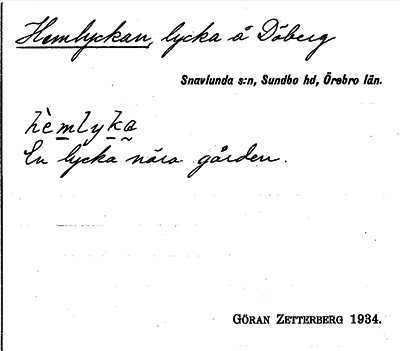 Hemlyckan, lycka å Döberg
Snavlunda s:n, Sundbo hd, Örebro län.
hèmlyka
En lycka nära gården.
GÖRAN ZETTERBERG 1934.